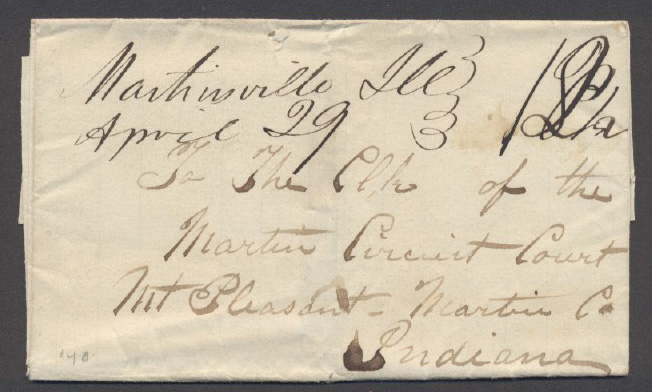 Martinsville Ill
April 29
To The Clk of the
Martin Circuit Court
Mt Pleasant - Martin Co
Indiana
'40